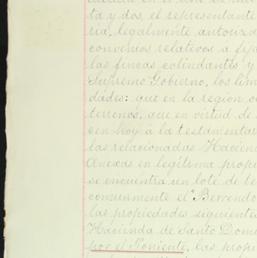 ta y dos, el representante
ria, legalmente autoriza
convenios relativos a
las fincas colindantes y
Supremo Gobierno, los lim
dades: que en la region o
terrenos, que en virtud de
cen hoy á la testamentar
las relacionadas Haciend
Anexas en legítima propi
se encuentra un lote de te
comunmente el Berrendo
las propiedades siguiente
Hacienda de Santo Dom
por el Poniente, las prop